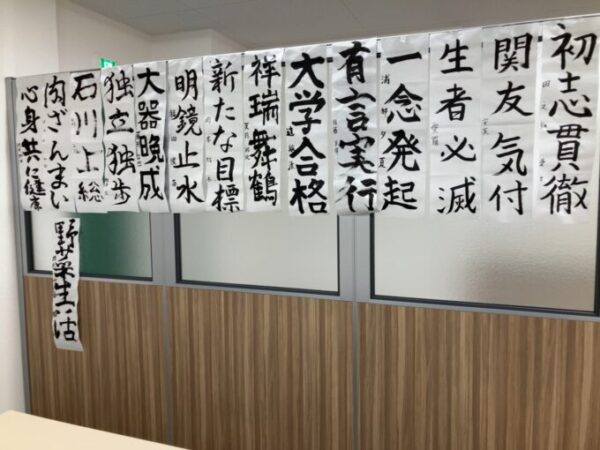 初志貫徹
関友気付
生者必滅
一念発起
有言実行
大学合格
祥瑞舞鶴
新たな目標
明鏡止水
大器晩成
独立独歩
石川上総
肉ざんまい
心身共に健康
野菜生活